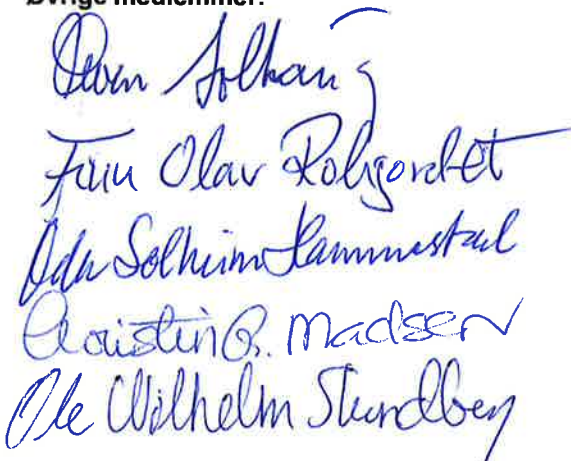 Øvrige medlemmer:
Solhaug
Finn Olav Roligordet
Oda Solheim Hammerstad
Christin G. Madsen
Ole Wilhelm Strundberg